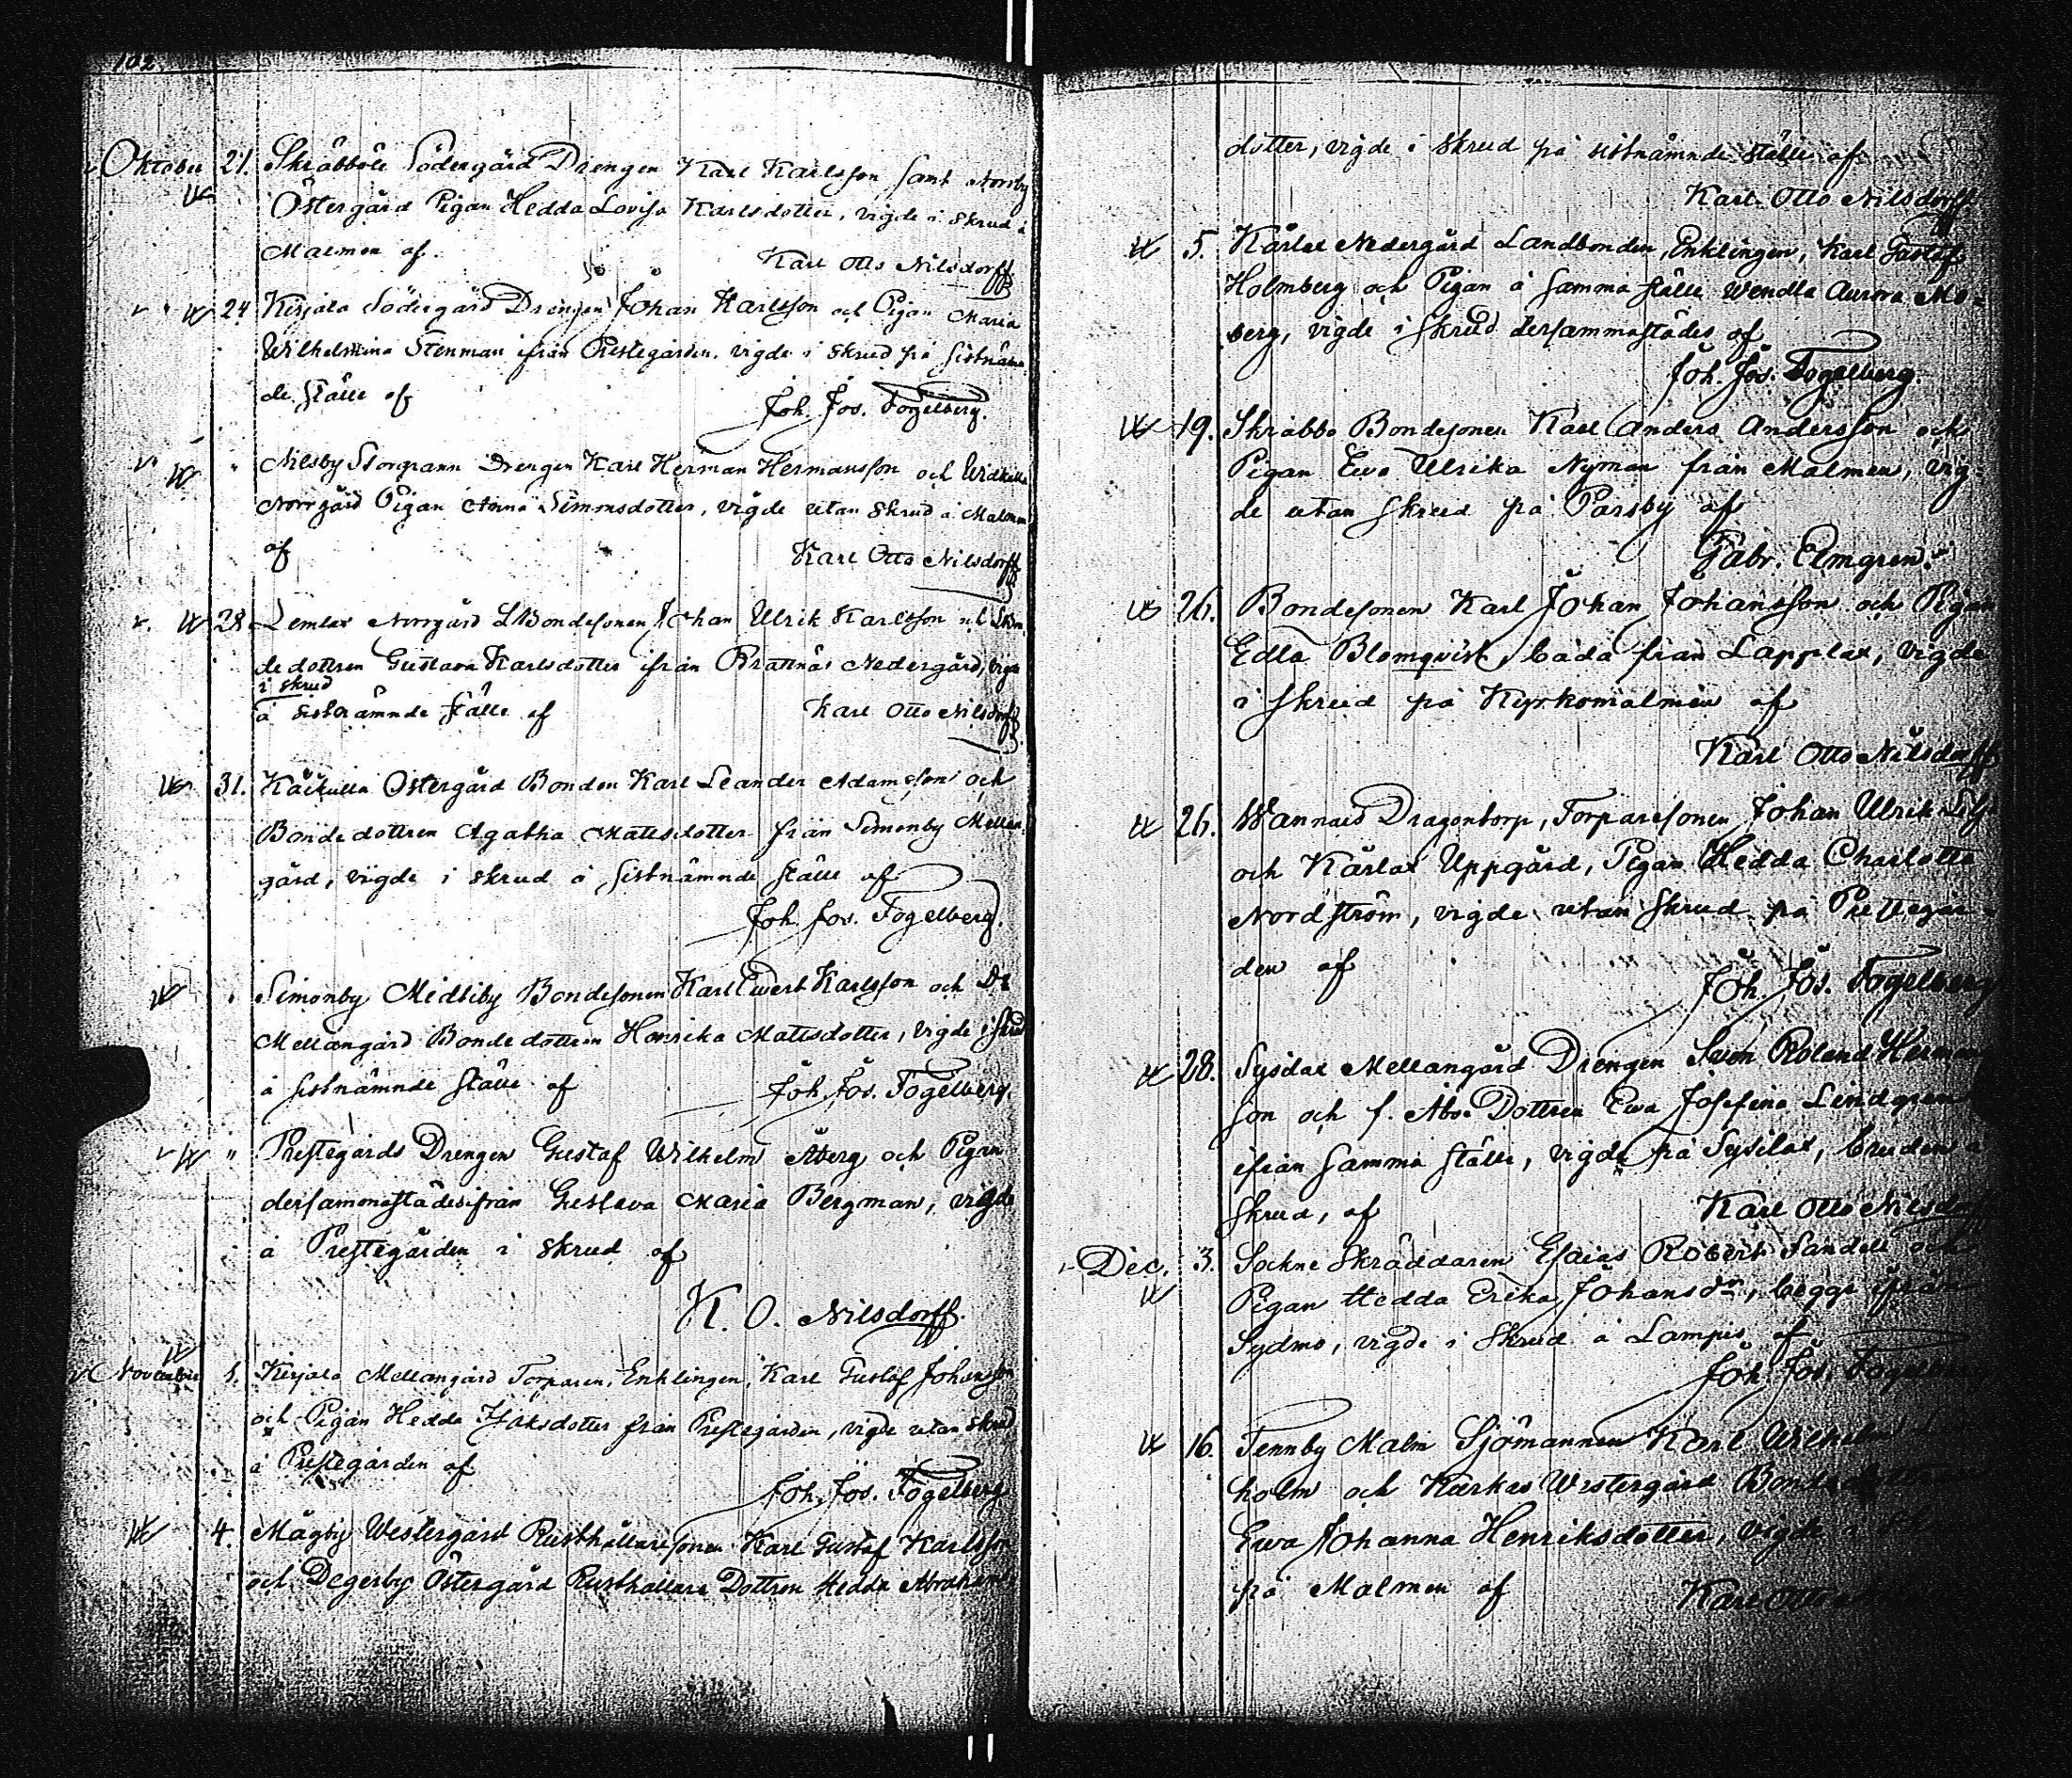 102.
Oktober 21. Skräbböle Södergård Drengen Karl Karlsson samt Norrby
Östergård Pigan Hedda Lovisa Karlsdotter, vigde i skrud å
Malmen af
Karl Otto Nilsdorff
24 Kirjala Södergård Drengen Johan Karlsson och Pigan Maria
Wilhelmina Stenman ifrån Prestegården, vigde i skrud på sistnämn
de ställe af
Joh. Jos. Fogelberg.
" Nilsby Storgrann Drengen Karl Herman Hermansson och
Norrgård Pigan Anna Simmsdotter, vigde utan skrud å Malmen
af
Karl Otto Nilsdorff
28 Lemlax Norrgård LBondesonen Johan Ulrik Karlsson och LBon
dedottren Gustava Karlsdotter ifrån Brattnäs Nedergård, vigde
i skrud
å sistnämnde ställe af
Karl Otto Nilsdorff
31. Kackulla Östergård Bonden Karl Leander Adamsson och
Bondedottren Agatha Mattsdotter från Simonby Mellan
gård, vigde i skrud å sistnämnde ställe af
Joh. Jos. Fogelberg.
" Simonby Midtiby Bondesonen Karl Evert Karlsson och D:o
Mellangård Bondedottren Henrika Mattsdotter, vigde i skrud
å sistnämnde ställe af
Joh. Jos. Fogelberg.
" Prestegårds Drengen Gustaf Wilhelm Åberg och Pigan
dersammastädesifrån Gustava Maria Bergman, vigde
å Prestegården i skrud af
K. O. Nilsdorff.
November 1. Kirjala Mellangård Torparen, Enklingen, Karl Gustaf Johansson
och Pigan Hedda Isaksdotter från Prestegården, vigde utan skrud
å Prestegården af
Joh. Jos. Fogelberg
4. Mågby Westergård Rusthållaresonen Karl Gustaf Karlsson
och Degerby Östergård Rusthållare Dottren Hedda Abrahams
dotter, vigde i skrud på sistnämnde ställe af
Karl Otto Nilsdorff
5. Kårlax Nedergård Landbonden, Enklingen, Karl Gustaf
Holmberg och Pigan å samma ställe Wendla Aurora Mo=
berg, vigde i skrud dersammastädes af
Joh. Jos. Fogelberg.
19. Skräbbo Bondesonen Karl Anders Andersson och
Pigan Eva Ulrika Nyman från Malmen, vig=
de utan skrud på Parsby af
Gabr. Elmgren.
26. Bondesonen Karl Johan Johansson och Pigan
Edla Blomqvist, båda från Lapplax, vigde
i skrud på Kyrkomalmen af
Karl Otto Nilsdorff
26. Wannais Dragontorp, Torparesonen Johan Ulrik
och Kårlax Uppgård, Pigan Hedda Charlotta
Nordström, vigde utan skrud på Prestegår=
den af
Joh. Jos. Fogelberg
28. Sysilax Mellangård Drengen Sven Roland Herman
son och f. Abo. Dottren Eva Josefina Lindgren
ifrån samma ställe, vigde på Sysilax, bruden i
skrud, af
Karl Otto Nilsdorff
Dec. 3. Sockne Skräddaren Esaias Robert Sandell och
Pigan Hedda Erika Johansdr, begge ifrån
Sydmo, vigde i skrud å Lampis af
Joh. Jos. Fogelberg
16. Tennby Malm Sjömannen Karl Wilhelm
holm och Kärkas Westergård
Eva Johanna Henriksdotter, vigde
på Malmen af
Karl Otto